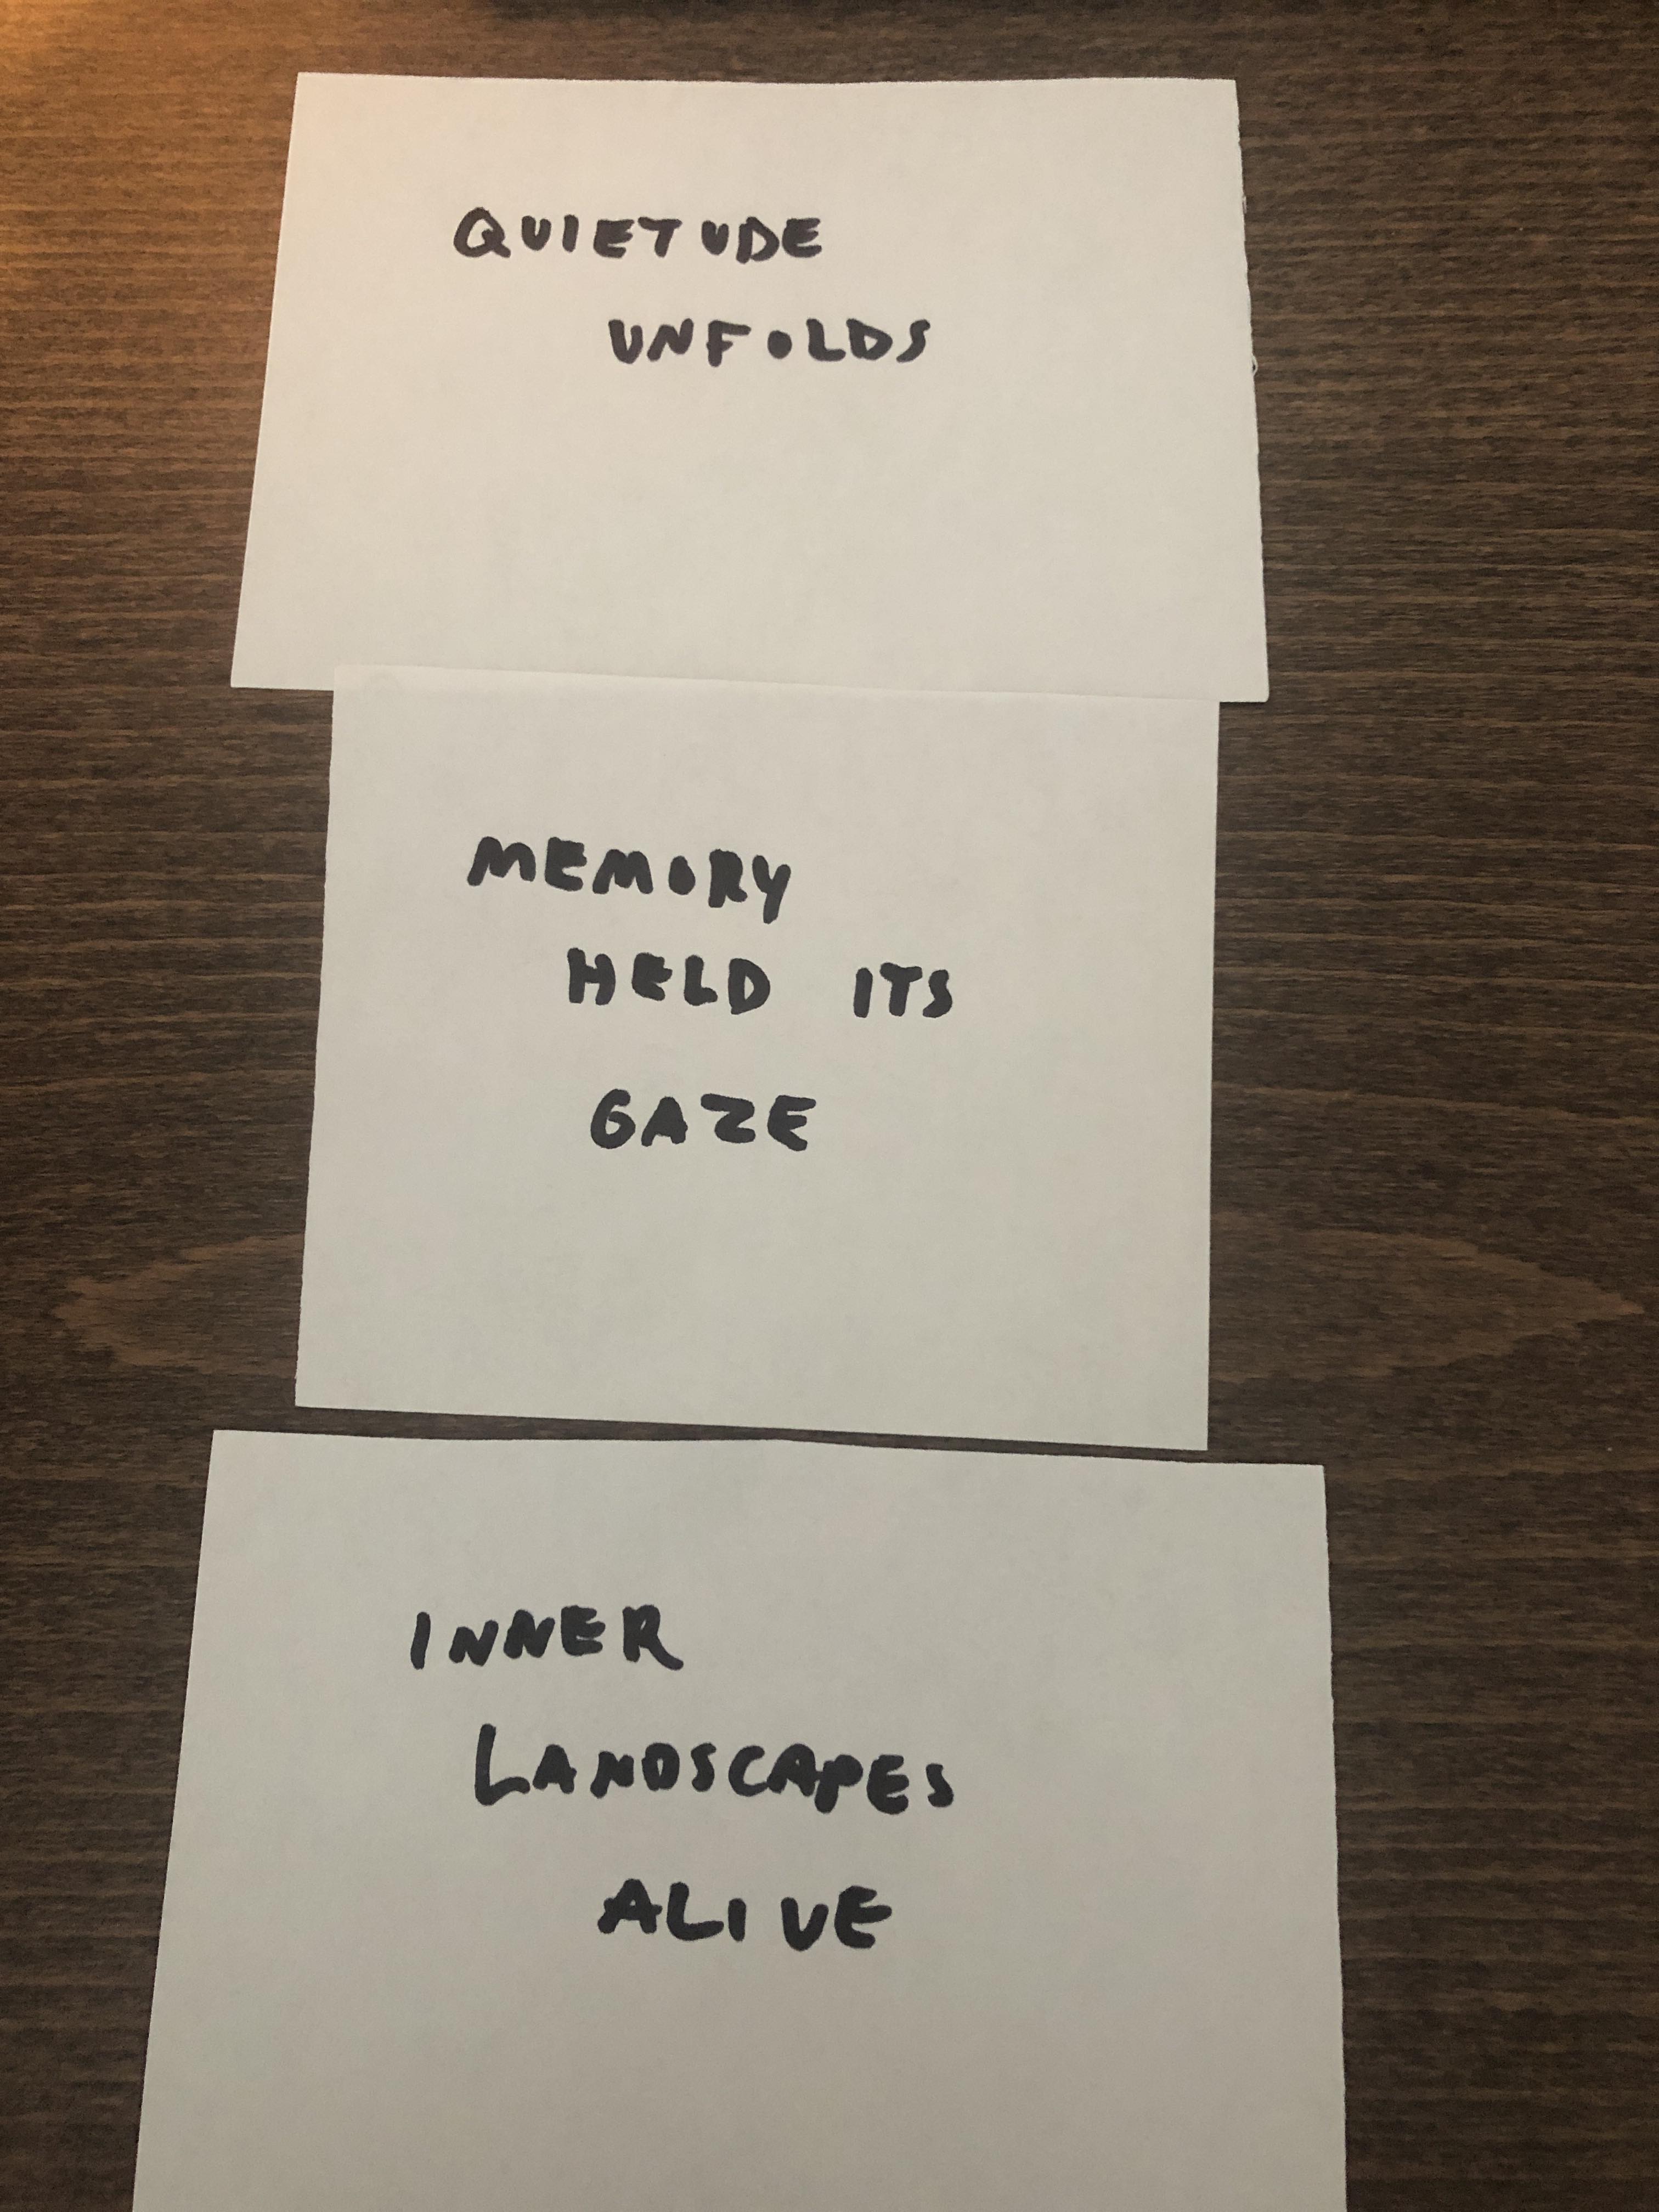 QUIETUDE
UNFOLDS
MEMORY
HELD ITS
GAZE
INNER
LANDSCAPES
ALIVE